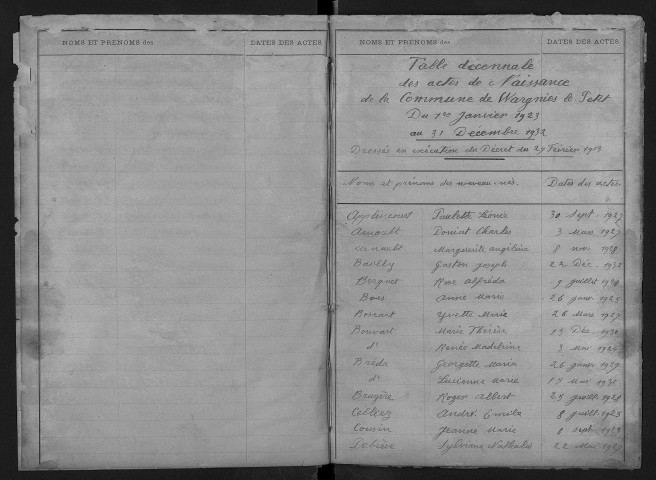 NOMS ET PRENOMS des DATES DES ACTES
NOMS ET PRENOMS des DATES DES ACTES
Table décennale
des actes de Naissance
de la Commune de Wargnies le Petit
Du 1er Janvier 1923
au 31 Décembre 1932
Dressée en exécution du Décret du Février
Noms et prénoms des nouveau-nés. Dates des actes
Applincourt Paulette Léonie 30 Sept. 1927
Arnoult Charles 3 Mars 1927
Arnoult Marguerite Angélina 8 nov.
Bailly Gaston Joseph 22 Déc. 1932
Berquet Rose Alfréda 9 juillet
Bois Anne Marie 26 janv.
Bossart Yvette Marie 26 Mars
Bouvart Marie Thérèse 13 Déc. 1930
d° Renée Madeleine 3 Mai
Bréda Georgette Maria 26 janvier
d° Lucienne Marie 17 Mai
Bruyère Roger Albert juillet 1928
André Emile 8 juillet
Cousin Jeanne Marie 8 sept.
Sylviane Nathalie 22 Mai